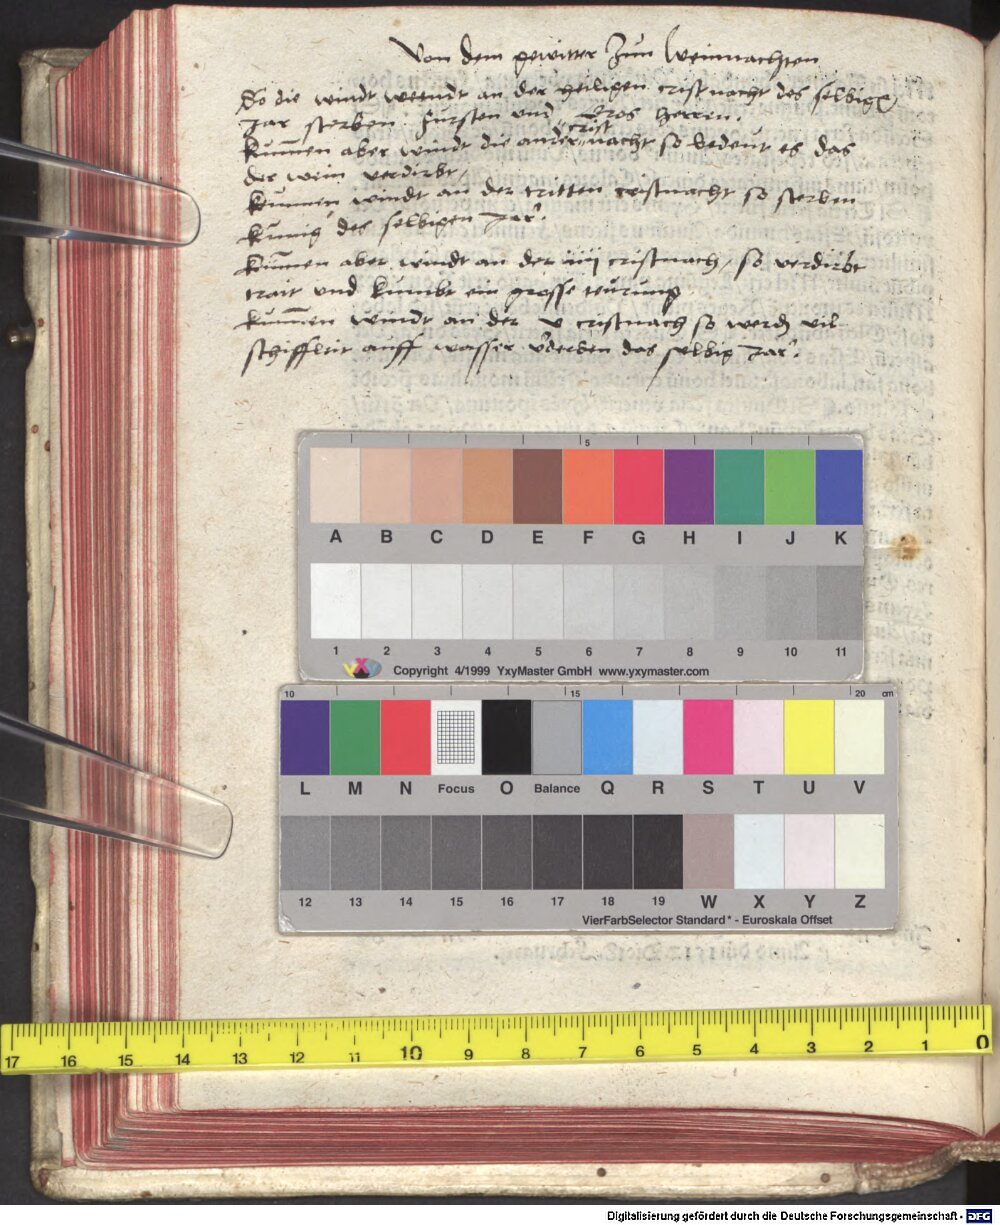 Von dem gewitter Zun Weinnachten
So die windt weendt an der heiligen cristnacht des selbigen
Jar sterben fursten und Gros herren.
crist
Kumen aber windt die ander nacht so bedeut es das
der wein verdirbt
Kumen windt an der tritten cristnacht so sterben
Kunig des selbigen Jar.
Kumen aber windt an der iiii cristnach so verdirbt
trait und kumbt ein grosse teurung
Kumen windt an der v cristnach so werden vil
schiffleit auff wasser das selbig Jar.
5
A B C D E F G H I J K
1 2 3 4 5 6 7 8 9 10 11
yxy Copyright 4/1999 YxyMaster GmbH www.yxymaster.com
10 15 20 cm
L M N Focus O Balance Q R S T U V
12 13 14 15 16 17 18 19 W X Y Z
VierFarbSelector Standard* - Euroskala Offset
17 16 15 14 13 12 11 10 9 8 7 6 5 4 3 2 1 0
Digitalisierung gefördert durch die Deutsche Forschungsgemeinschaft - DFG